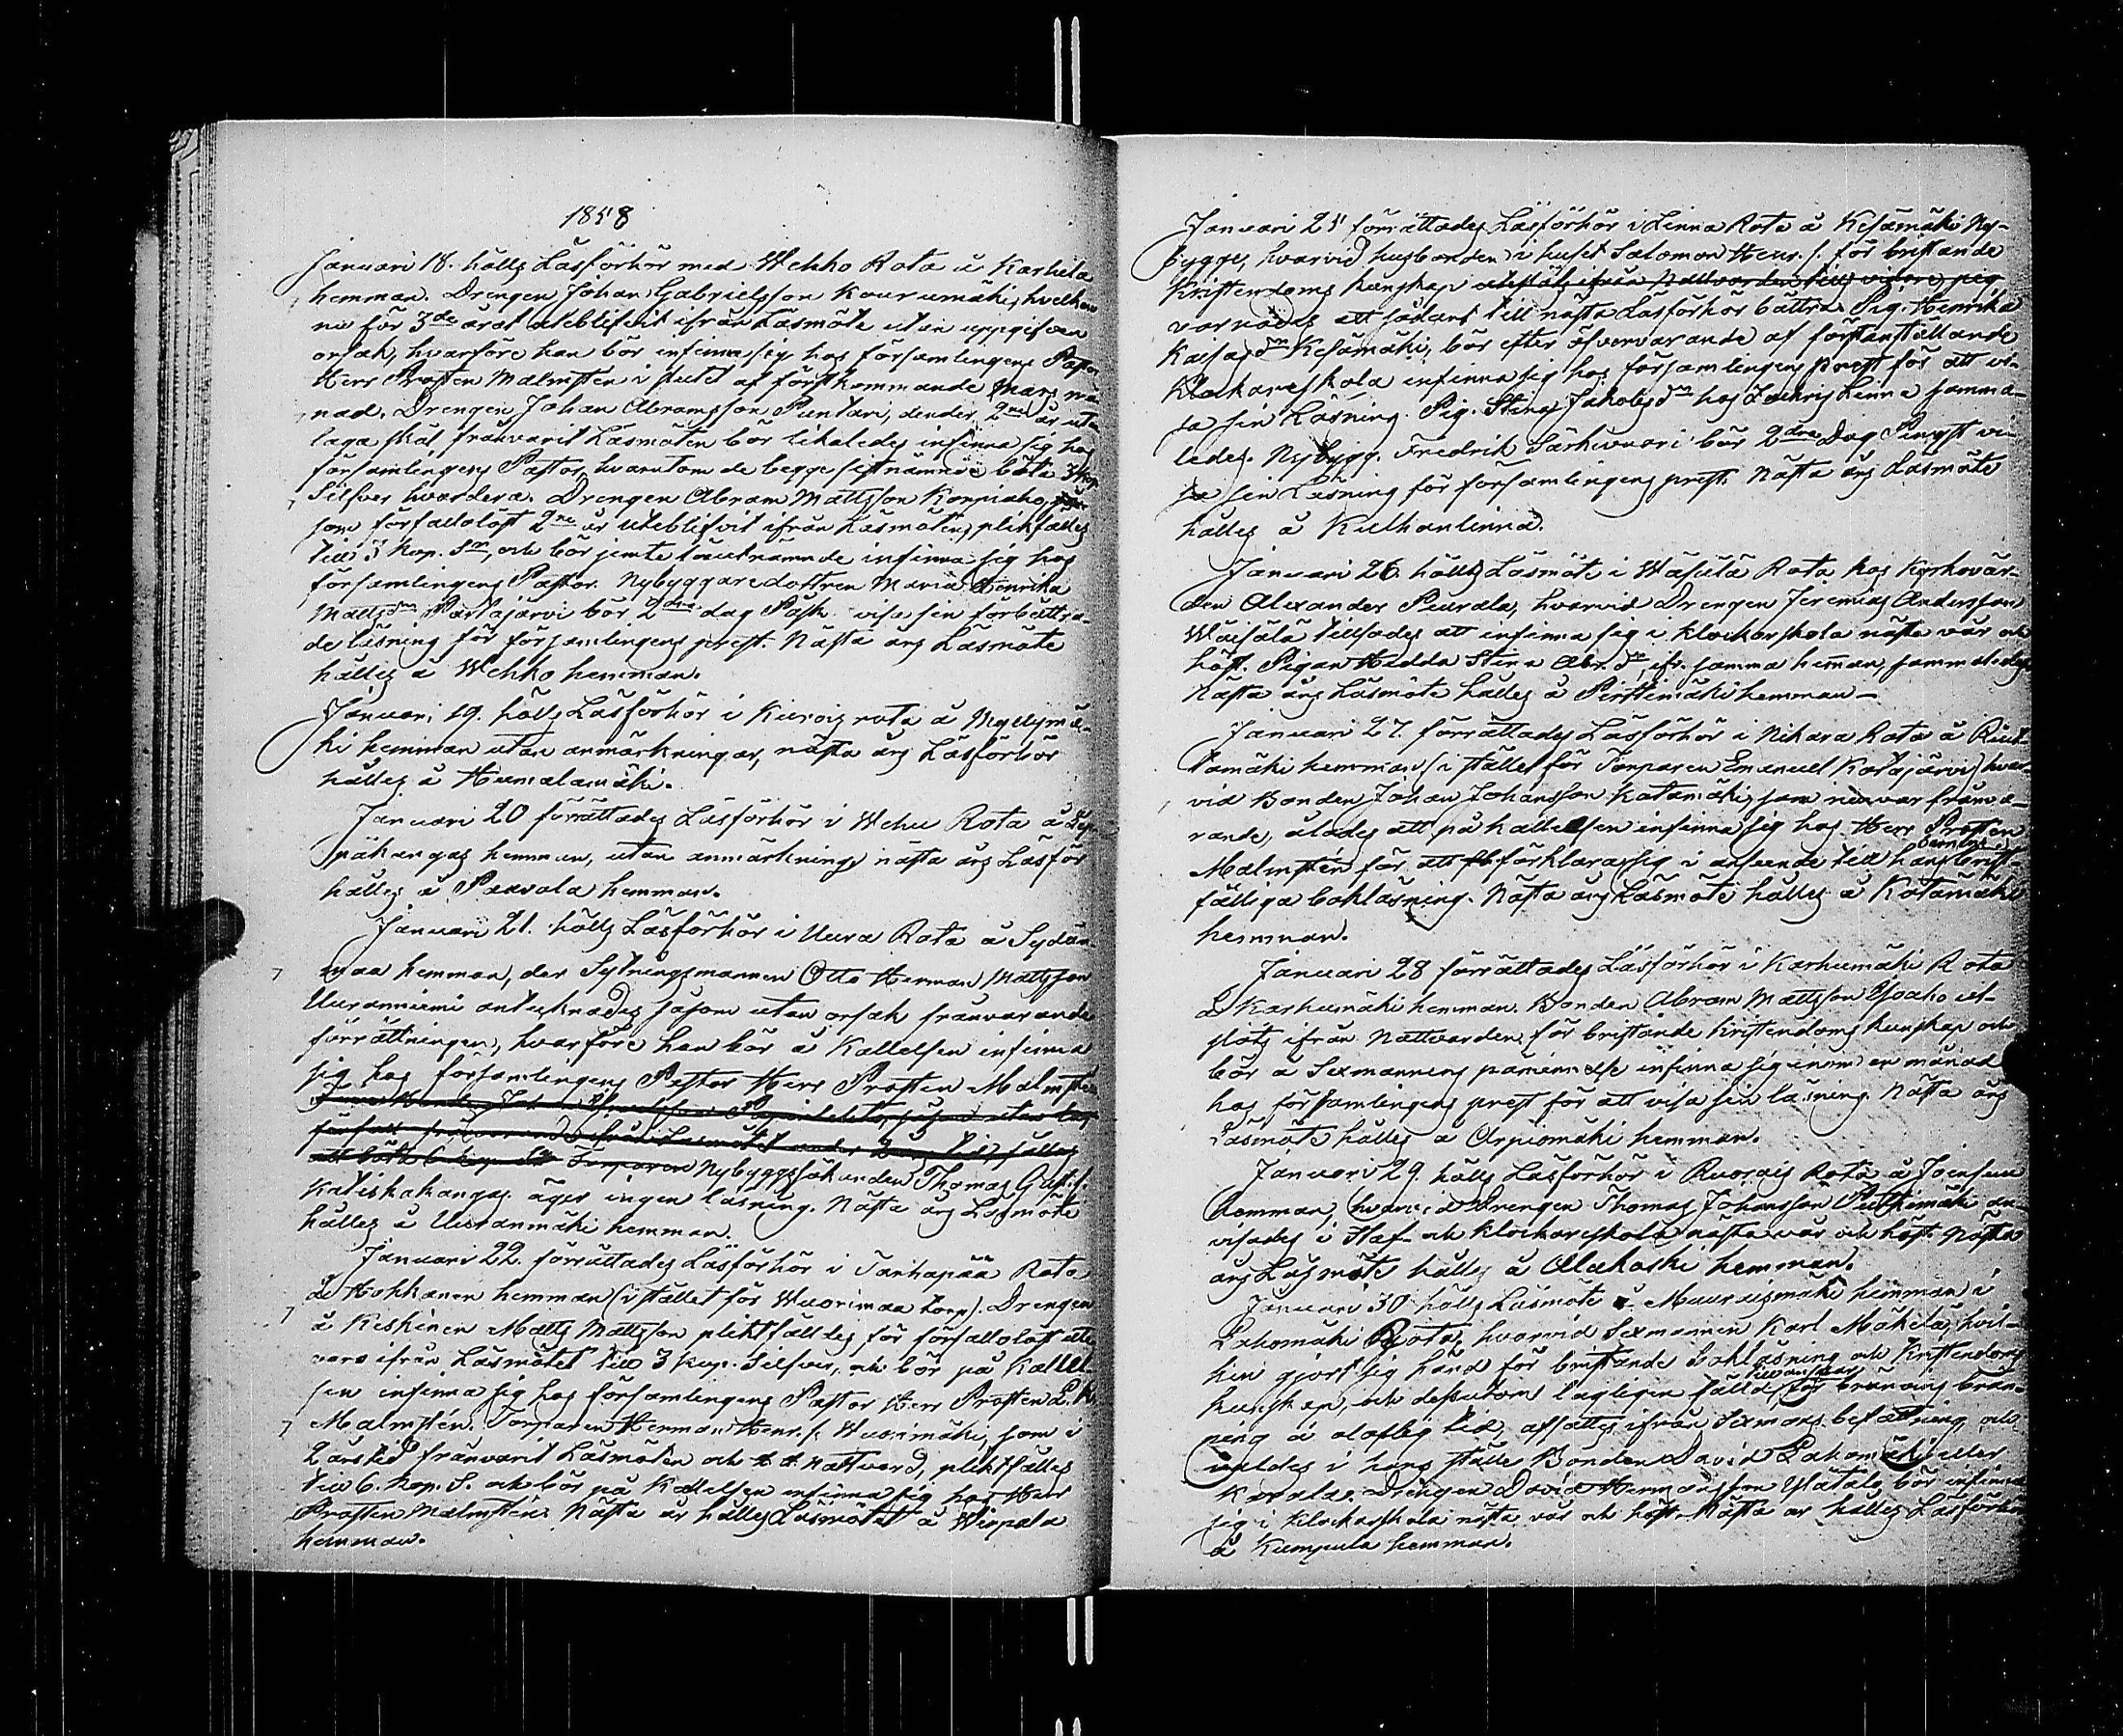 1858
Januari 18. hölls Läsförhör med Wehko Rota å Karhula
hemman. Drengen Johan Gabrielsson Kaurumäki, hvilken
nu för 3de året uteblifvit ifrån Läsmöte utan uppgifven
orsak, hvarföre han bör infinna sig hos församlingens Pastor
Herr Prosten Malmstén i slutet af förstkommande Mars må-
nad. Drengen Johan Abramsson Puntari, den der 2ne år utan
laga skäl frånvarit Läsmöten bör likaledes infinna sig hos
församlingens Pastor, hvarutom de begge sistnämnde böta 3 kop.
Silfver hvardera. Drengen Abram Mattsson Korpiaho,
som förfallolöst 2ne år uteblifvit ifrån Läsmöten, pliktfälles
till 3 kop. Sr, och bör jemte läutnämnde infinna sig hos
församlingens Pastor. Nybyggaredottren Maria Henrika
Mattsdr Partajärvi bör 2dra dag Påsk visa sin förbättra-
de läsning för församlingens prest. Nästa års Läsmöte
hålles å Wehko hemman.
Januari 19. hölls Läsförhör i Kiuvois rota å Myllymä-
ki hemman utan anmärkningar, nästa års Läsförhör
hålles å Humalamäki.
Januari 20 förrättades Läsförhör i Wehu Rota å
päkangas hemman, utan anmärkning, nästa års Läsför
hålles å Paavola hemman.
Januari 21. hölls Läsförhör i Uura Rota å Sydän-
maa hemman, der Sytningsmannen Otto Herman Mattsson
Uuranniemi antecknades såsom utan orsak frånvarande
förrättningen, hvarföre han bör å Kallelsen infinna
sig hos församlingens Pastor Herr Prosten Malmstén
Torparen Nybyggssökanden Thomas Gab.s.
Katiskakangas äger ingen läsning. Nästa års Läsmöte
hålles å Uuranmäki hemman.
Januari 22. förrättades Läsförhör i Tarhapää Rota
å Hokkanen hemman (i stället för Wuorimaa torp). Drengen
å Keskinen Matts Mattsson pliktfälldes för förfallolöst ute
vara ifrån Läsmötet till 3 kop. Silfver, och bör på Kallel-
sen infinna sig hos församlingens Pastor Herr Prosten
Malmstén. Torparen Herman Henr.s. Wuorimäki, som i
2 års tid frånvarit Läsmöten och H. H. Nattvard, pliktfälles
till 6. kop. S. och bör på Kallelsen infinna sig hos Herr
Prosten Malmstén. Nästa år hålles Läsmötet å Wiopala
hemman.
Januari 25 förrättades Läsförhör i Linna Rota å Kesämäki Ny-
bygge, hvarvid husbonden i huset Salomon Henr.s. för bristande
Kristendoms kunskap uteslöts ifrån Nattvarden till vidare sig
varnades att sådant till nästa Läsförhör bättra. Pig. Henrika
Kaisasdr Kesämäki, bör efter öfvervarande af förstanstaltande
Klockareskola infinna sig hos församlingens prest för att vi-
sa sin Läsning. Pig. Stina Jakobsdr hos Zachris Linna samma-
ledes. Nybygg. Fredrik Särkivuori bör 2dra Dag Pingst vi-
sa sin Läsning för församlingens prest. Nästa års Läsmöte
hålles å Kulhanlinna.
Januari 26. hölls Läsmöte i Wäsulä Rota hos Kyrkovär-
den Alexander Peurala, hvarvid Drengen Jeremias Andersson
Wäisälä tillsades att infinna sig i Klockarskola nästa vår och
höst. Pigan Hedda Stina Abr.dr, ifr. samma hemman, sammaledes.
Nästa års Läsmöte hålles å Pirttimäki hemman —
Januari 27. förrättades Läsförhör i Nikara Rota å Riut-
tamäki hemman (i stället för Torparen Emanuel Katajärvi) hvar-
vid Bonden Johan Johansson Katamäki, som nu var fråva-
rande, ålades att på kallelsen infinna sig hos Herr Prosten
Malmstén för att förklara sig i anseende till hans brist-
fälliga bokläsning. Nästa års Läsmöte hålles å Kotamäki
hemman.
Januari 28 förrättades Läsförhör i Karhumäki Rota
å Karhumäki hemman. Bonden Abram Mattsson Ypaho ut-
slöts ifrån Nattvarden för bristande kristendoms kunskap och
bör å Sexmannens påminnelse infinna sig inom en månad
hos församlingens prest för att visa sin läsning. Nästa års
Läsmöte hålles å Arpiomäki hemman.
Januari 29. hölls Läsförhör i Ruonais Rota å Joensuu
hemman, hvarvid Drengen Thomas Johansson Pulkimäki an-
visades i Staf- och Klockareskola nästa vår och höst. Nästa
års Läsmöte hålles å Alakoski hemman.
Januari 30 hölls Läsmöte å Muuraismäki hemman i
Lahomäki Rota, hvarvid Sexmannen Karl Mäkelä, hvil-
ken gjort sig känd för bristande Bokläsning och Kristendoms
kunskap, och dessutom lagligen fälld till ansvar för bränvins brän-
ning å olaflig tid, afsattes ifrån Sexmans befattning, och
valdes i hans ställe Bonden David Lahomäki eller
Kavala. Drengen David Hermansson Ylätalo bör infinna
sig i Klockarskola nästa vår och höst. Nästa år hålles Läsförhör
å Kumpula hemman.